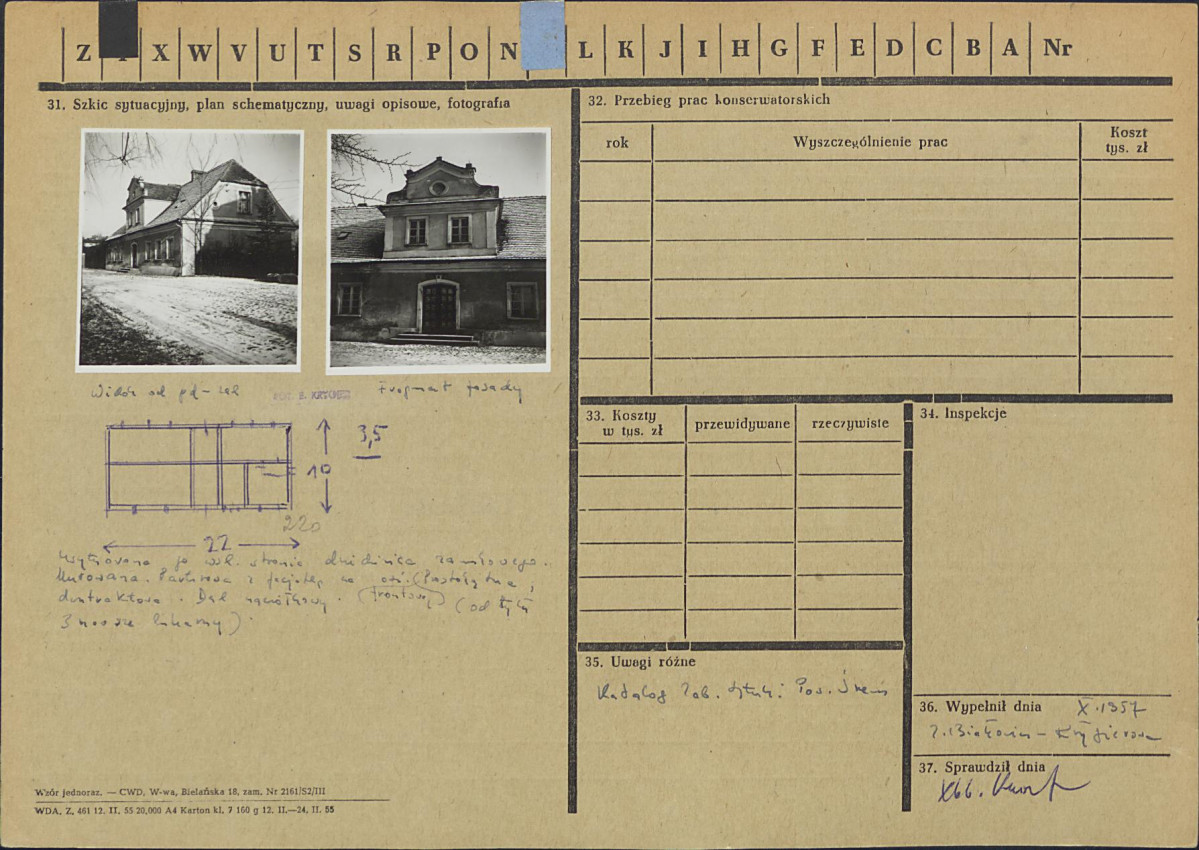 Z X W V U T S R P O N L K J I H G F E D C B A Nr
31. Szkic sytuacyjny, plan schematyczny, uwagi opisowe, fotografia
Widok od pd-zch
Fragment fasady
3,5
10
220
22
wsch. stronie dziedzińca zamkowego.
Murowana. Parterowa z facjatą na osi. (Prostokątna,
dwutraktowa. Dach naczółkowy. (frontową) (od tyłu
3 nowsze lukarny).
Wzór jednoraz. — CWD, W-wa, Bielańska 18, zam. Nr 2161/S2/III
WDA. Z. 461 12. II. 55 20.000 A4 Karton kl. 7 160 g 12. II.—24. II. 55
32. Przebieg prac konserwatorskich
rok
Wyszczególnienie prac
Koszt
tys. zł
33. Koszty
w tys. zł
przewidywane
rzeczywiste
34. Inspekcje
35. Uwagi różne
Katalog Zab. Sztuki Pow. Śrem
36. Wypełnił dnia X.1957
37. Sprawdził dnia